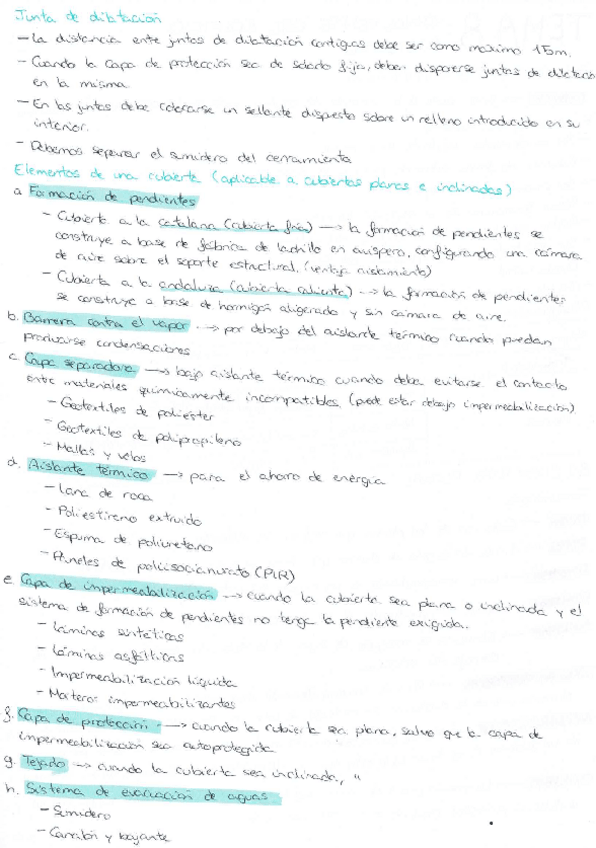 Junta de dilatación
- La distancia entre juntas de dilatación contiguas debe ser como máximo 15m.
- Cuando la capa de protección sea de solado fijo, deben disponerse juntas de dilatación
en la misma
- En las juntas debe colocarse un sellante dispuesto sobre un relleno introducido en su
interior.
- Debemos separar el sumidero del cerramiento
Elementos de una cubierta (aplicable a cubiertas planas e inclinadas)
a. Formación de pendientes
- Cubierta a la catalana (cubierta fría) → la formación de pendientes se
construye a base de fábrica de ladrillo en avispero, configurando una cámara
de aire sobre el soporte estructural. (ventaja aislamiento)
- Cubierta a la andaluza (cubierta caliente) → la formación de pendientes
se construye a base de hormigón aligerado y sin cámara de aire.
b. Barrera contra el vapor → por debajo del aislante térmico cuando puedan
producirse condensaciones
c. Capa separadora → bajo aislante térmico cuando deba evitarse el contacto
entre materiales químicamente incompatibles. (puede estar debajo impermeabilización)
- Geotextiles de poliéster
- Geotextiles de polipropileno
- Mallas y velos
d. Aislante térmico → para el ahorro de energía
- Lana de roca
- Poliestireno extruido
- Espuma de poliuretano
- Paneles de poliisocianurato (PIR)
e. Capa de impermeabilización → cuando la cubierta sea plana o inclinada y el
sistema de formación de pendientes no tenga la pendiente exigida.
- Láminas sintéticas
- Láminas asfálticas
- Impermeabilización líquida
- Morteros impermeabilizantes
f. Capa de protección → cuando la cubierta sea plana, salvo que la capa de
impermeabilización sea autoprotegida
g. Tejado → cuando la cubierta sea inclinada, "
h. Sistema de evacuación de aguas
- Sumidero
- Canalón y bajante